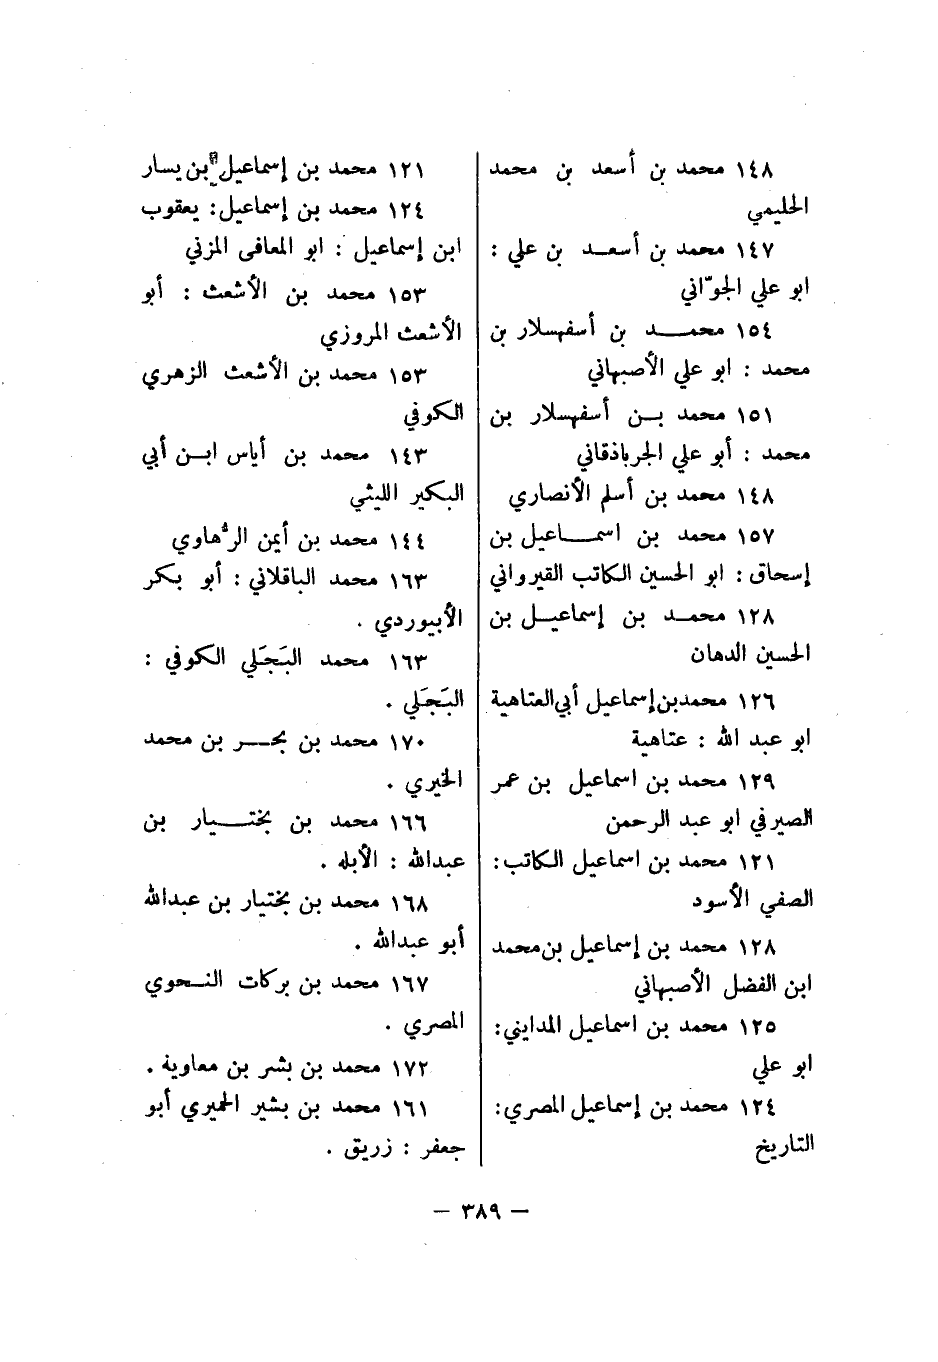 ١٤٨ محمد بن أسعد بن محمد
الحليمي
١٤٧ محمد بن أسعد بن علي :
ابو علي الجوّاني
١٥٤ محمد بن أسفهسلار بن
محمد : ابو علي الأصبهاني
١٥١ محمد بن أسفهسلار بن
محمد : أبو علي الجرباذقاني
١٤٨ محمد بن أسلم الأنصاري
١٥٧ محمد بن اسماعيل بن
إسحاق : ابو الحسين الكاتب القيرواني
١٢٨ محمد بن إسماعيل بن
الحسين الدهان
١٢٦ محمد بن إسماعيل أبي العتاهية
ابو عبد الله : عتاهية
١٢٩ محمد بن اسماعيل بن عمر
الصيرفي ابو عبد الرحمن
١٢١ محمد بن اسماعيل الكاتب :
الصفي الأسود
١٢٨ محمد بن إسماعيل بن محمد
ابن الفضل الأصبهاني
١٢٥ محمد بن اسماعيل المدايني :
ابو علي
١٢٤ محمد بن إسماعيل المصري :
التاريخ
١٢١ محمد بن إسماعيل بن يسار
١٢٤ محمد بن إسماعيل : يعقوب
ابن إسماعيل : ابو المعافى المزني
١٥٣ محمد بن الأشعث : أبو
الأشعث المروزي
١٥٣ محمد بن الأشعث الزهري
الكوفي
١٤٣ محمد بن أياس ابن أبي
البكير الليثي
١٤٤ محمد بن أيمن الرُّهاوي
١٦٣ محمد الباقلاني : أبو بكر
الأبيوردي .
١٦٣ محمد البَجَلي الكوفي :
البَجَلي .
١٧٠ محمد بن بحر بن محمد
الخيري .
١٦٦ محمد بن بختيار بن
عبدالله : الأبله .
١٦٨ محمد بن بختيار بن عبدالله
أبو عبدالله .
١٦٧ محمد بن بركات النحوي
المصري .
١٧٢ محمد بن بشر بن معاوية .
١٦١ محمد بن بشير الحميري أبو
جعفر : زريق .
— ٣٨٩ —